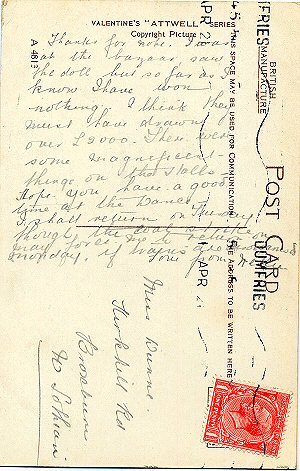 VALENTINE'S "ATTWELL" SERIES
Copyright Picture
A 4813
Thanks for note. I was
at the bazaar saw
the doll but so far as I
know I have won
nothing. I think they
must have drawn
over £2000. There were
some magnificent
things on the Stalls.
Hope you have a good
time at the Dance.
I shall return on Tuesday
though the coal strike
may force me to return on
Monday, if trains
Miss Dunne
Kirkhill Rd
Broxburn
W. Lothian
THIS SPACE MAY BE USED FOR COMMUNICATION
THE ADDRESS TO BE WRITTEN HERE
BRITISH
MANUFACTURE
POST CARD
DUMFRIES
APR